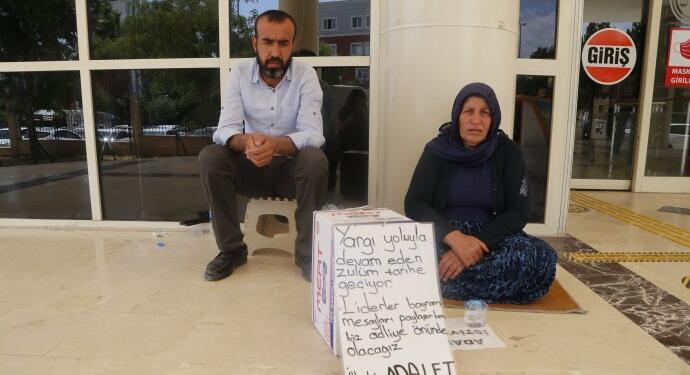 GİRİŞ
MASK
GİRİL
MERT
Yargı yoluyla
devam eden
zulüm tarihe
geçiyor.
Liderler bayram
mesajları paylaşırken
biz adliye önünde
olacağız
ADALET
ADA
İSTİY